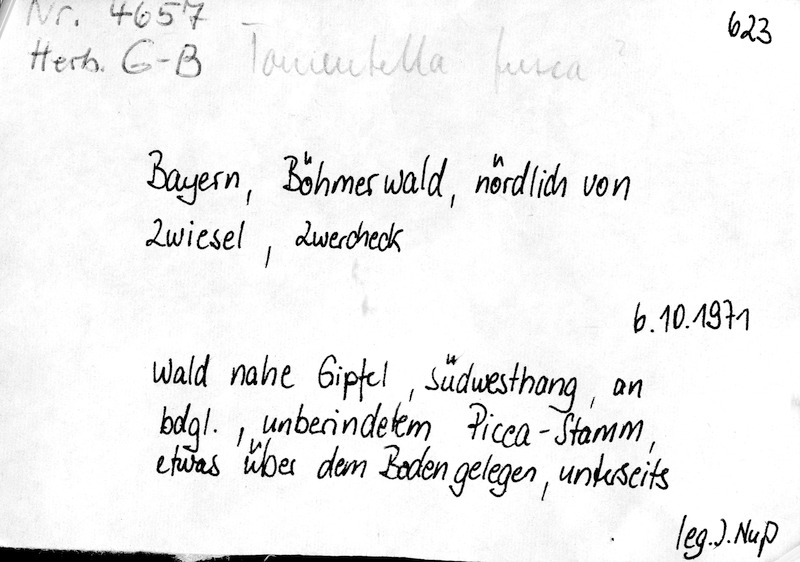 Nr. 4657
623
Herb. G-B Tomentella fusca ?
Bayern, Böhmerwald, nördlich von
Zwiesel, Zwercheck
6.10.1971
Wald nahe Gipfel, Südwesthang, an
bdgl., unberindetem Picea-Stamm,
etwas über dem Boden gelegen, unterseits
leg. J. Nuß